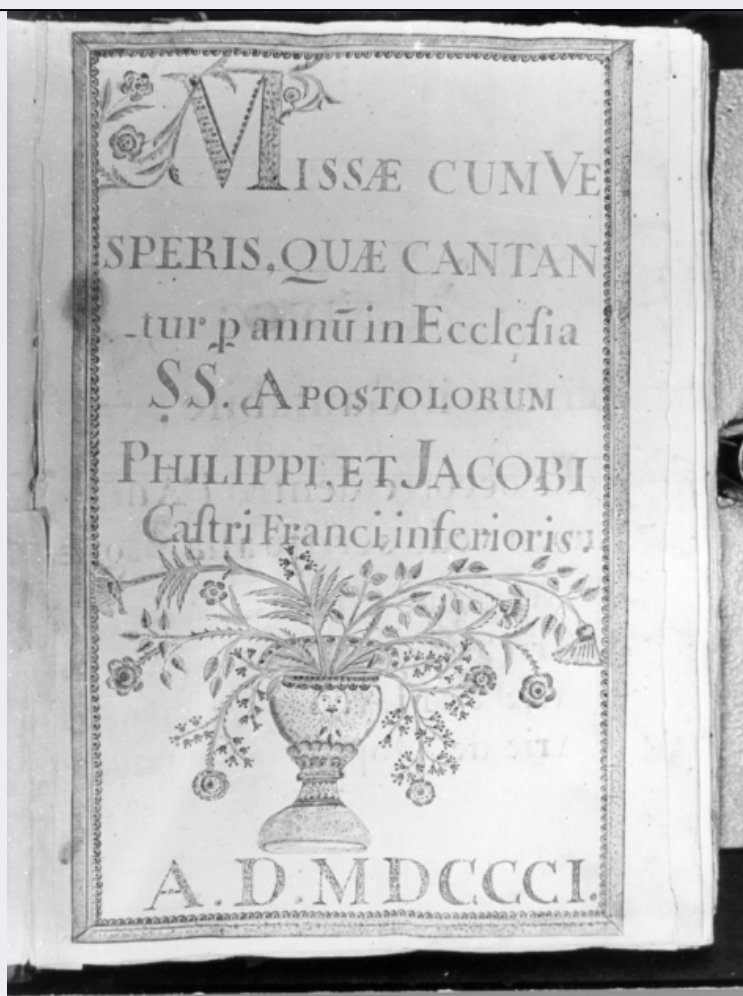 MISSÆ CUM VE
SPERIS, QUÆ CANTAN
tur p annū in Eccleſia
SS. APOSTOLORUM
PHILIPPI, ET JACOBI
Caſtri Franci inferioris.
A. D. MDCCCI.